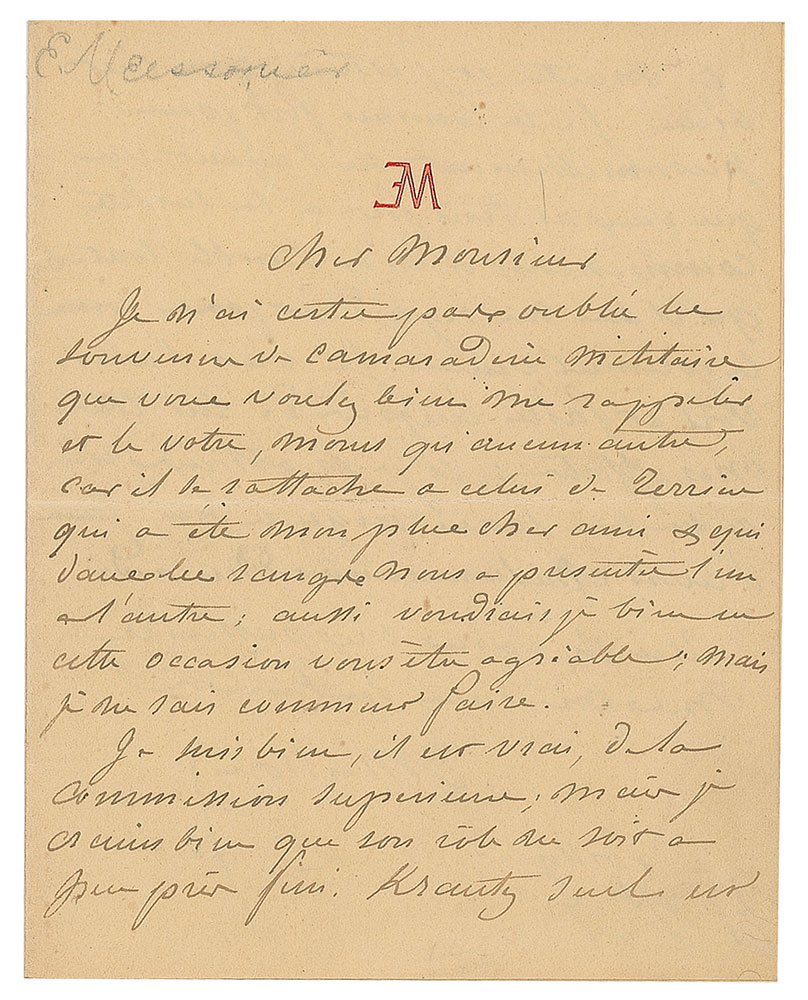 E. Meissonier
EM
Cher Monsieur
Je n'ai certes pas oublié les
souvenirs de camaraderie militaire
que vous voulez bien me rappeler
et le votre, moins qu'aucun autre,
car il se rattache a celui de
qui a été mon plus cher ami & qui
dans les rangs nous a présentés l'un
a l'autre; aussi voudrais je bien en
cette occasion vous être agréable; mais
je ne sais comment faire.
Je suis bien, il est vrai, de la
commission supérieure; mais je
crains bien que son rôle ne soit a
peu près fini. Krantz seul est